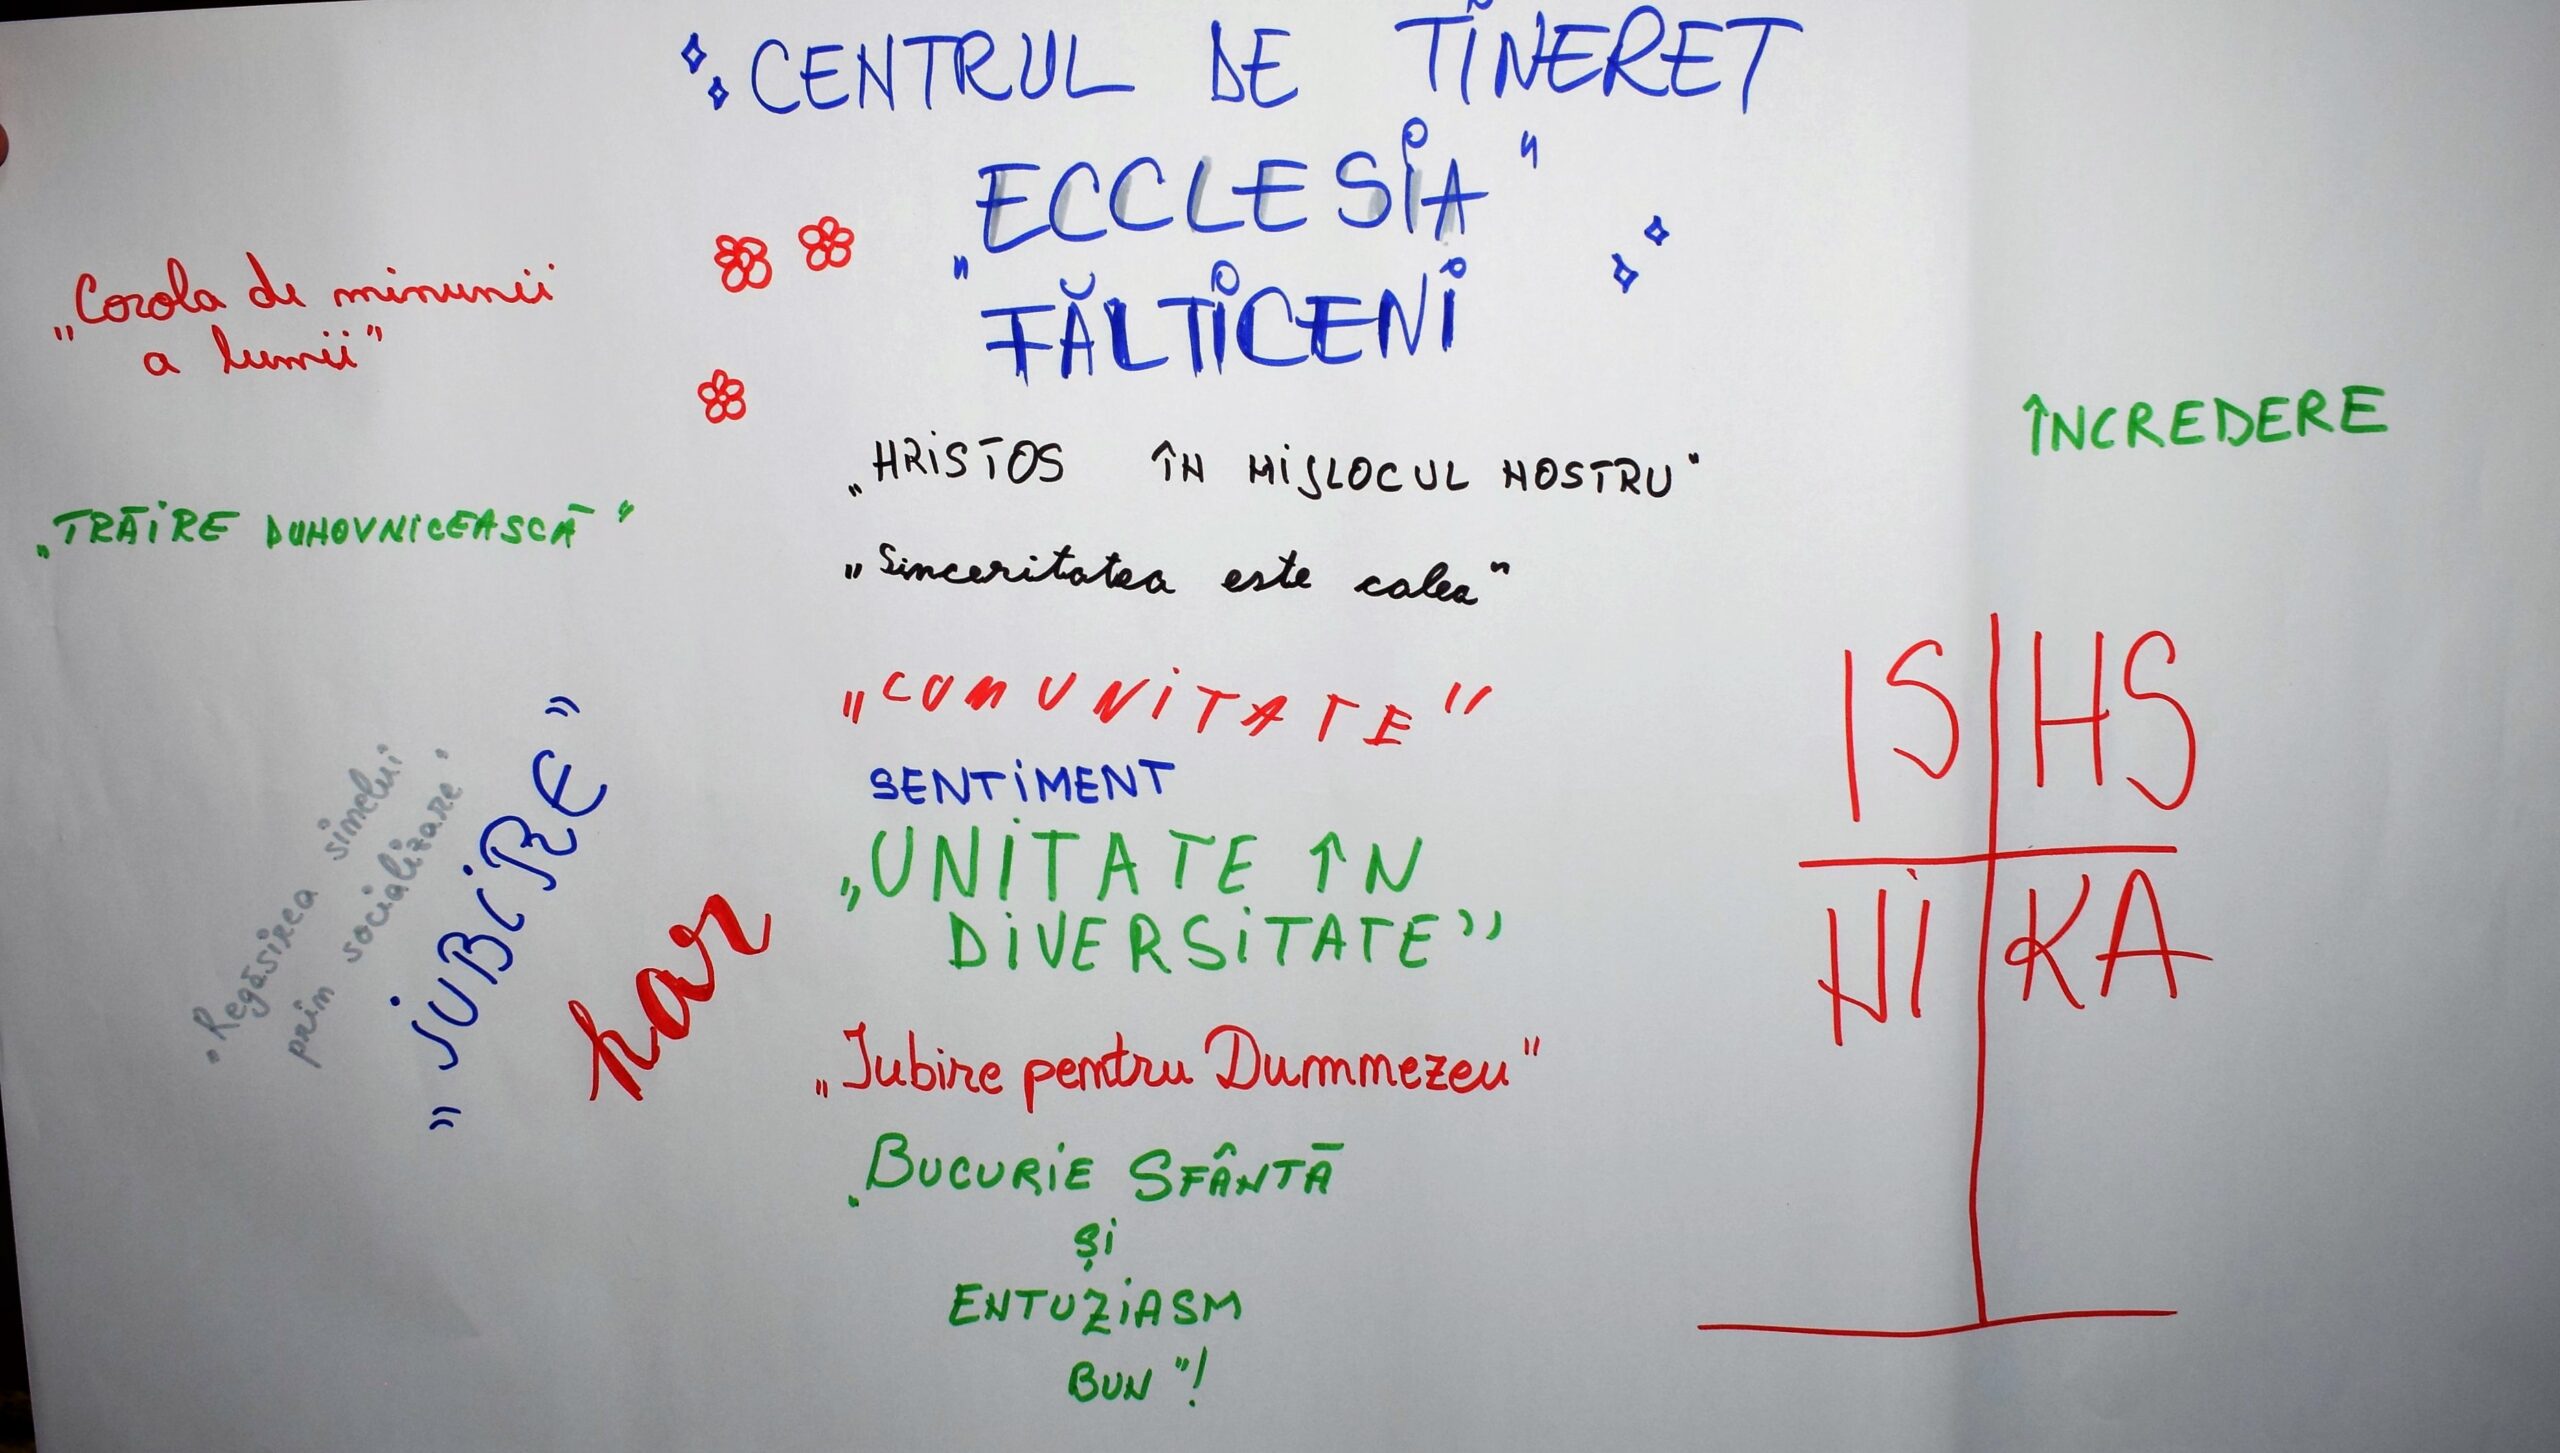 CENTRUL DE TINERET
„ECCLESIA"
FĂLTICENI
„Corola de minunii
a lumii"
„HRISTOS ÎN MIJLOCUL NOSTRU"
ÎNCREDERE
„TRĂIRE DUHOVNICEASCĂ"
„Sinceritatea este calea"
„COMUNITATE"
SENTIMENT
„UNITATE ÎN
DIVERSITATE"
„Regăsirea sinelui
prin socializare"
„IUBIRE"
har
„Iubire pentru Dummezeu"
„BUCURIE SFÂNTĂ
ȘI
ENTUZIASM
BUN"!
IS HS
NI KA